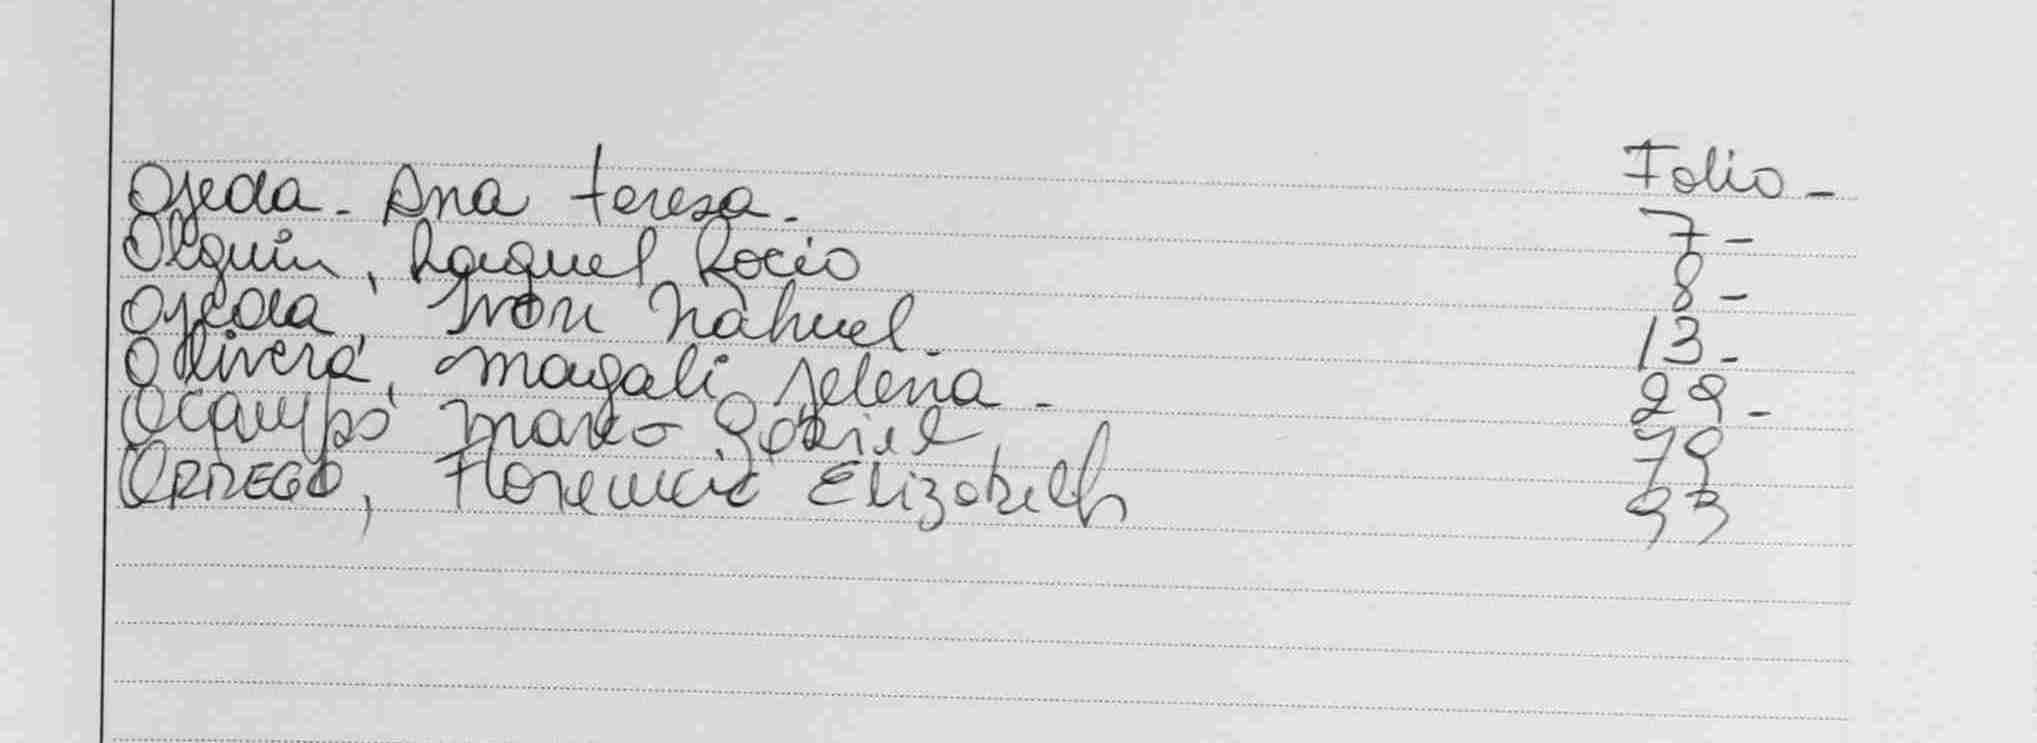 Folio -
Ojeda - Ana teresa - 7 -
Olguin, Raquel Rocio 8 -
Ojeda, Ivon Nahuel - 13 -
Olivera, Magali Selena - 29 -
Ocampo Marco Gabriel 79
ORREGO, Florencia Elizabeth 93